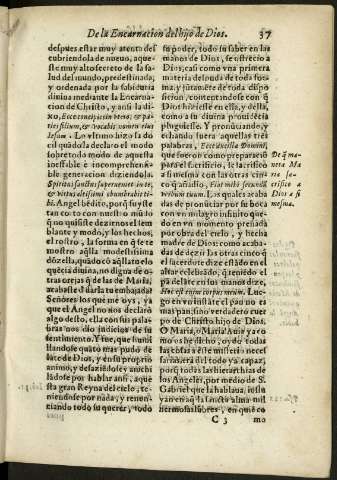 De la Encarnacion del hijo de Dios. 37
despues estar muy atento des
cubriendola de nueuo, aque-
ste muy alto secreto de la sa-
lud del mundo, predestinada,
y ordenada por la sabiduria
diuina mediante la Encarna
cion de Christo, y ansi la di-
xo, Ecce concipies in vtero, & pa-
ries filium, & vocabis nomen eius
Iesum. Lo vltimo lo de
quedãdo la declaro el modo
sobre todo modo de aquella
ineffable e incomprehensi-
ble generacion diziendola.
Spiritus sanctus superueniet in te,
& virtus altissimi obumbrabit ti-
bi. Angel bẽdito, porq̃ fuyste
tan corto con nuestro mũdo
q̃ no quisiste dezirnos el tem
blante y modo, y los hechos,
el rostro, la forma en q̃ este
mostro aq̃lla modestissima
dõzella, quãdo oyo aq̃l alto elo
quẽcia diuina, no digna de o-
tras orejas q̃ de las de Maria,
acabaste d'darla tu embaxada
Señores los que me oys, ya
que el Angel no nos declaro
algo desto, ella con sus pala-
bras nos dio indicios de su
sentimiento. Y fue, que humi
llandose quãto mas pudo de
lãte de Dios, y en su proprio
animo, y deshaziẽdose y anichi
lãdose por hablar ansi, aque
sta gran Reyna del cielo, te-
niendose por nada, y renun-
ciando todo su querer, todo
su poder, todo su saber en las
manos de Dios, se ofrecio a
Dios; casi como vna primera
materia desnuda de toda for-
ma, y juntamẽte de toda dispo
sicion, contentandose con q̃
Dios hiziesse en ella, y della,
como a su diuina prouidẽcia
pluguiesse. Y pronũciando, y
echando fuera aquellas tres
palabras, Ecce ancilla Domini,
que fueron como prepararse
para el sacrificio, le sacrifico
a si mesma con las otras cin-
co q̃ añadio, Fiat mihi secundũ
verbum tuum. Las quales acaba
das de pronunciar por su boca
con vn milagro infinito que-
do en vn momento preñada
por obra del cielo, y hecha
madre de Dios: como acaba-
das de dezir las otras cinco el
sacerdote q̃ se está do en el
altar celebrãdo, q̃ teniẽdo el
pã delãte en sus manos dize,
Hoc est enim corpus meum. Lue-
go en vn instãte el pan no es
mas pan, sino verdadero cuer
po de Christo hijo de Dios.
O Maria, o Maria! Aun ya co
mo os he dicho, o y de todas
las cosas a este misterio necef
sarias era del todo ya capaz,
porq̃ todas las hierarchias de
los Angeles, por medio de S.
Gabriel que la hablaua, la
aquella sancta alma mil
hermosas flores, en que co
De q̃ ma
nera Ma
ria sa-
crifico a
Dios a si
mesma.
C 3 mo